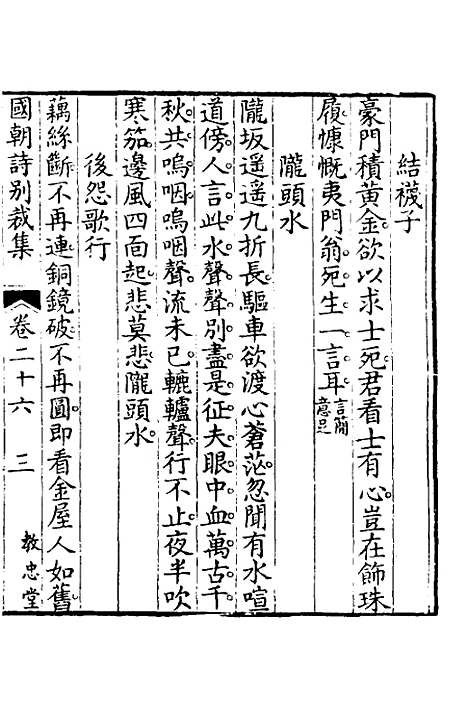 結襪子
豪門積黃金欲以求士死君看士有心豈在飾珠
履慷慨夷門翁死生一言耳言簡意足
隴頭水
隴坂遥遥九折長驅車欲渡心蒼茫忽聞有水喧
道傍人言此水聲聲別盡是征夫眼中血萬古千
秋共嗚咽嗚咽聲流未已轆轤聲行不止夜半吹
寒笳邊風四面起悲莫悲隴頭水
後怨歌行
藕絲斷不再連銅鏡破不再圓即看金屋人如舊
國朝詩別裁集 卷二十六 三 教忠堂